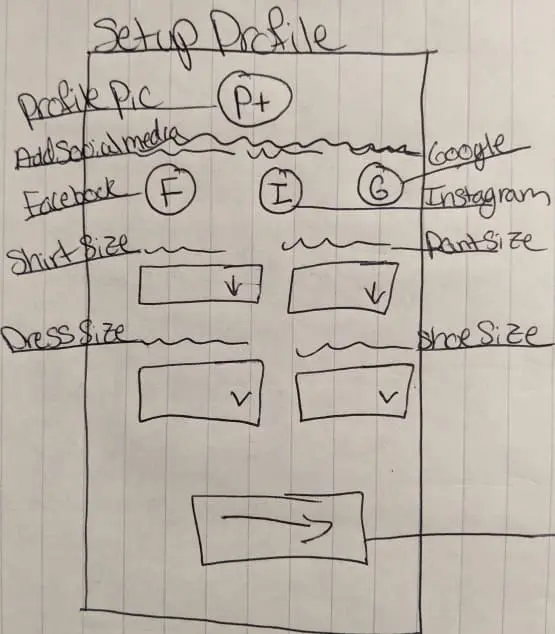 Setup Profile
Profile Pic
P+
Add Social media
Google
Facebook
F
I
G
Instagram
Shirt Size
Pant Size
Dress Size
Shoe Size